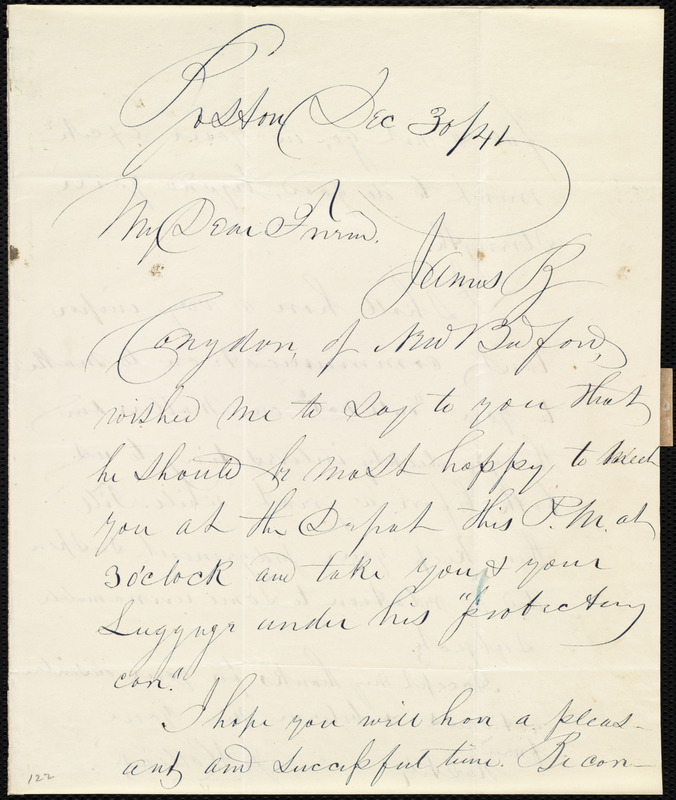 Boston Dec 30/41
My Dear Friend.
James B
Congdon, of New Bedford,
wished me to say to you that
he should be most happy to meet
you at the Depot this P.M. at
3 o'clock and take you & your
Luggage under his "protecting
care."
I hope you will have a pleas-
ant and successful time. Be con-
122